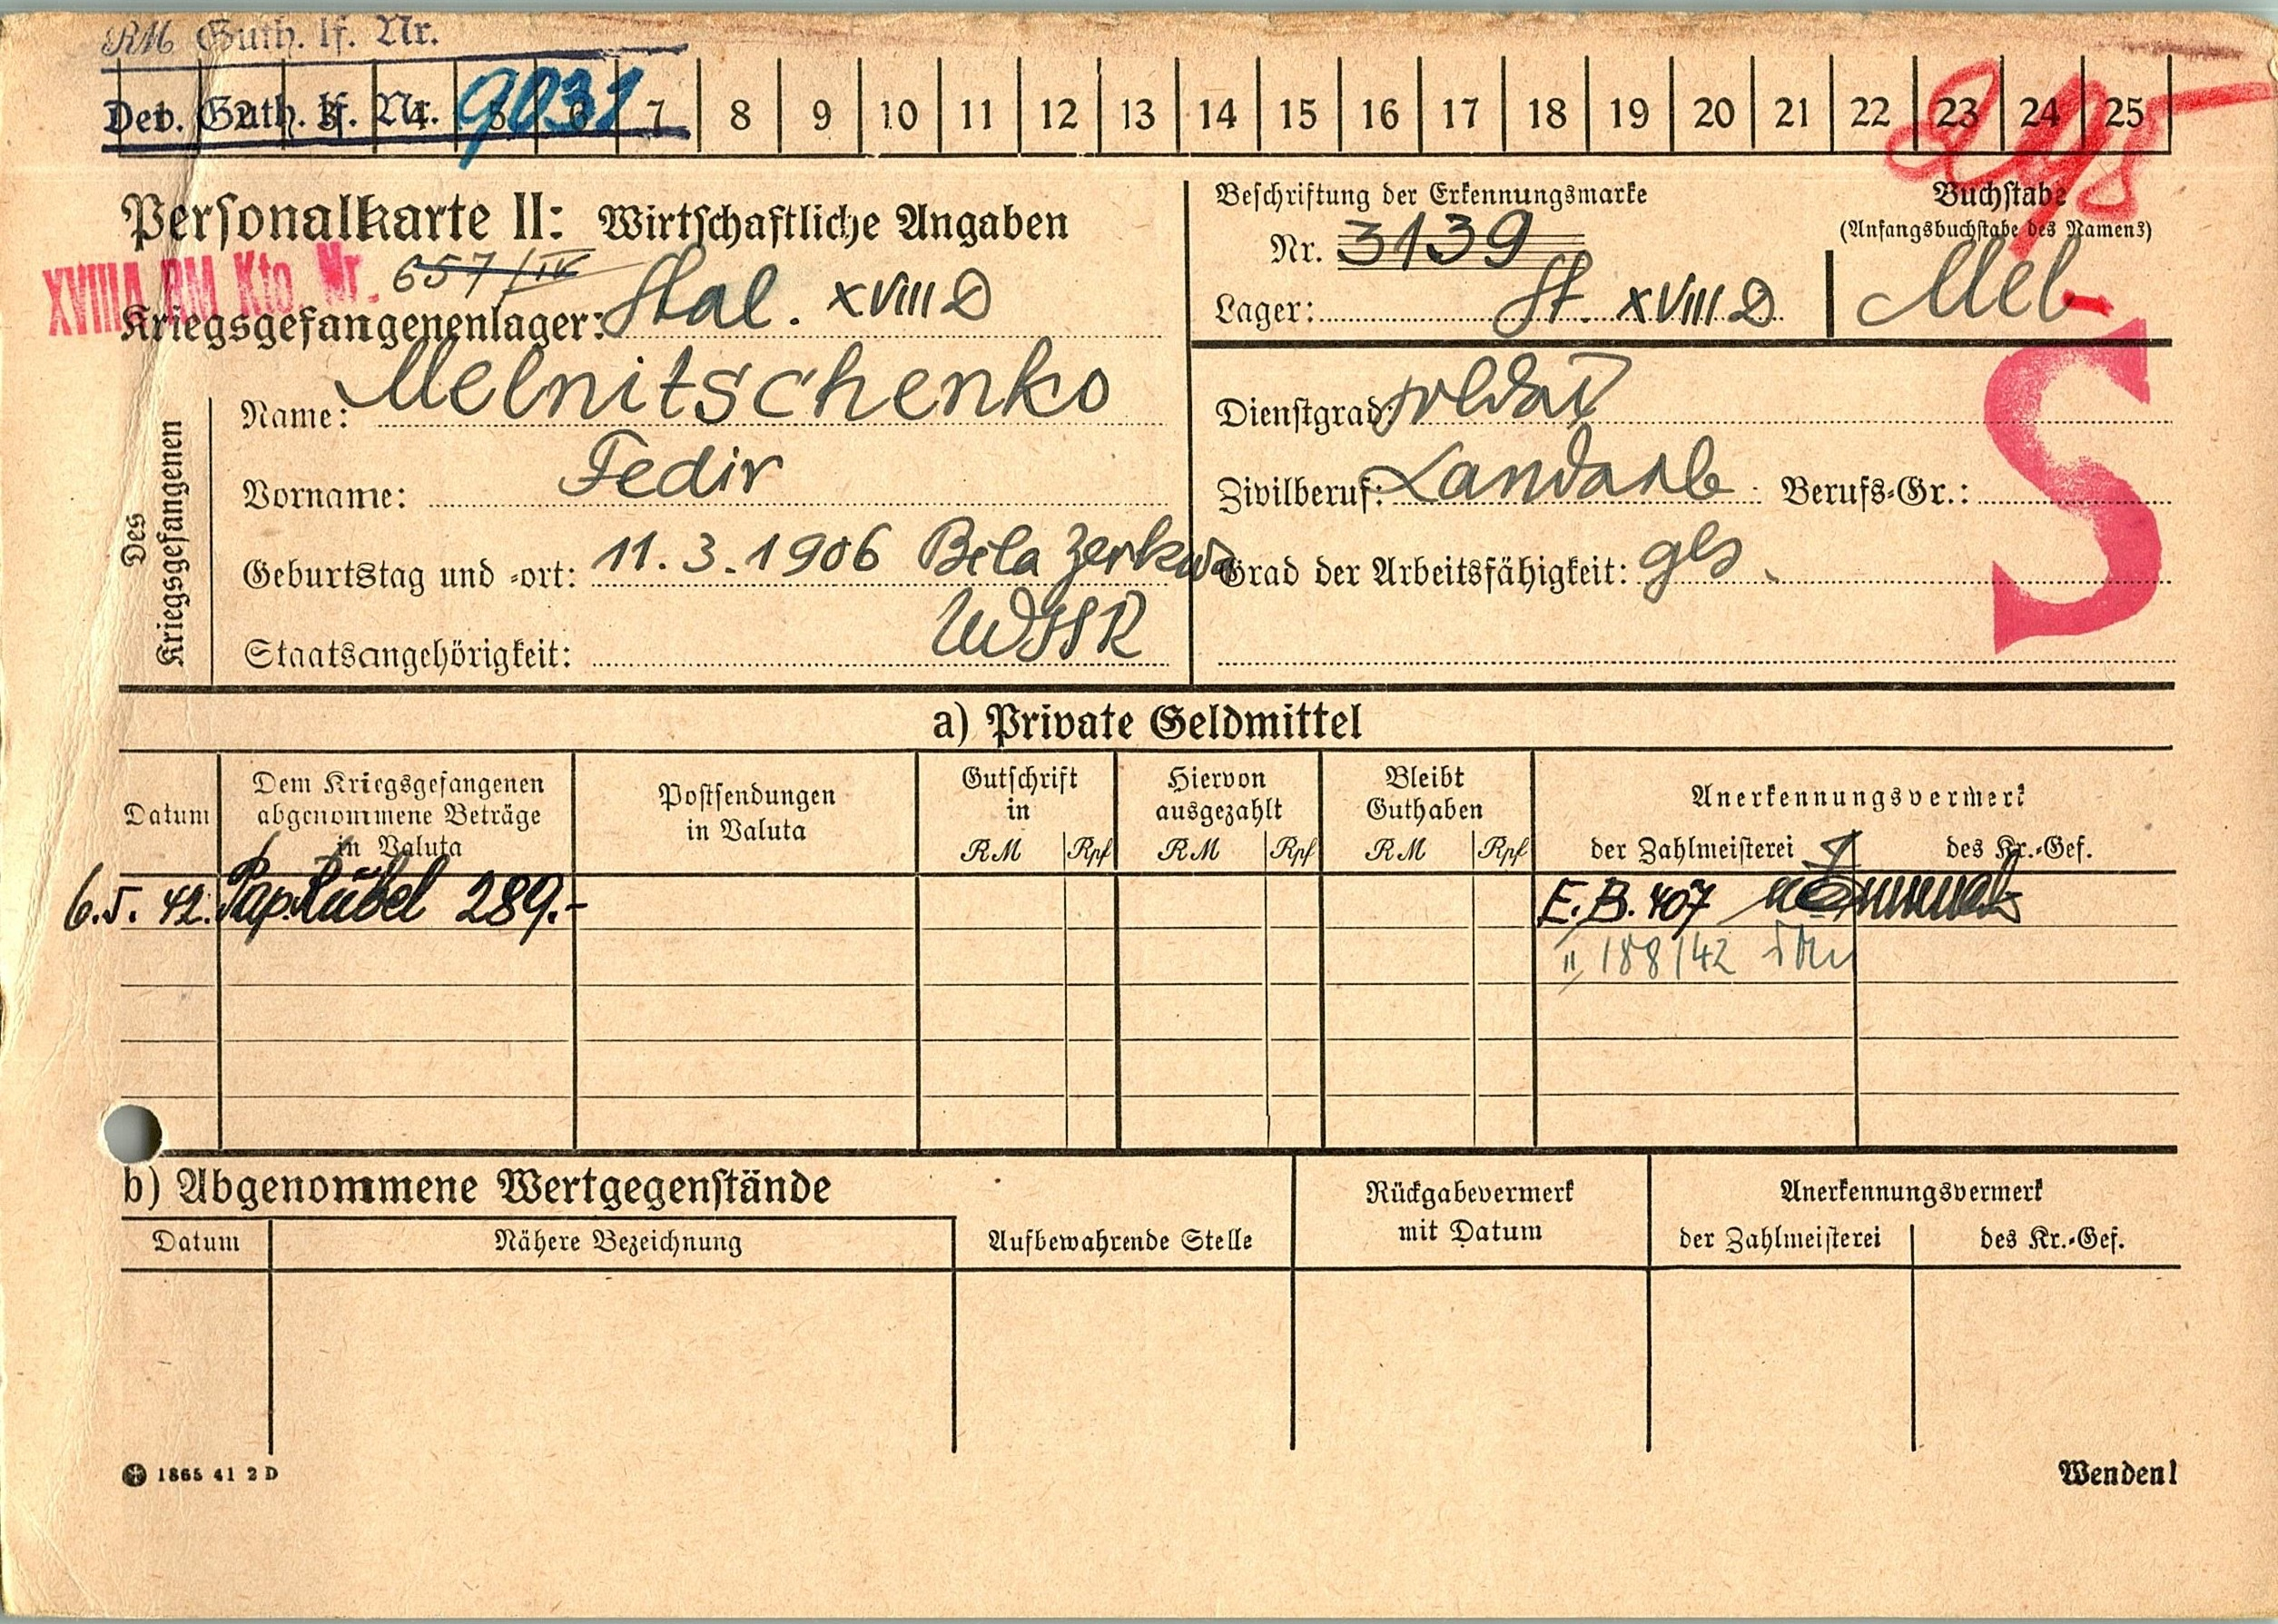 RM Guth. lf. Nr.
Dev. Guth. lf. Nr. 9031
1 2 3 4 5 6 7 8 9 10 11 12 13 14 15 16 17 18 19 20 21 22 23 24 25
Personalkarte II: Wirtschaftliche Angaben
XVIIIA RM Kto. Nr. 657/IV
Kriegsgefangenenlager: Stal. XVIII D
Beschriftung der Erkennungsmarke
Nr. 3139
Lager: St. XVIII D
Buchstabe
(Anfangsbuchstabe des Namens)
Mel
S
Des Kriegsgefangenen
Name: Melnitschenko
Vorname: Fedir
Geburtstag und -ort: 11.3.1906 Bila Zerkwa
Staatsangehörigkeit: UdSSR
Dienstgrad: Soldat
Zivilberuf: Landarb Berufs-Gr.:
Grad der Arbeitsfähigkeit: ges.
a) Private Geldmittel
Datum
Dem Kriegsgefangenen
abgenommene Beträge
in Valuta
Postsendungen
in Valuta
Gutschrift
in
RM Rpf
Hiervon
ausgezahlt
RM Rpf
Bleibt
Guthaben
RM Rpf
Anerkennungsvermerk
der Zahlmeisterei des Kr.-Gef.
6.5.42. Pap. Rubel 289.- E.B. 407
II/188/42
b) Abgenommene Wertgegenstände
Datum Nähere Bezeichnung
Aufbewahrende Stelle
Rückgabevermerk
mit Datum
Anerkennungsvermerk
der Zahlmeisterei des Kr.-Gef.
1865 41 2 D
Wenden!